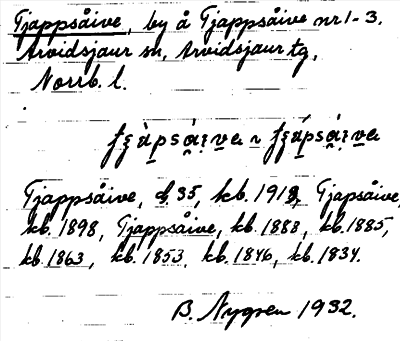 Tjappsåive, by å Tjappsåive nr 1-3.
Arvidsjaur sn, Arvidsjaur tg,
Norrb. l.
Tjappsåive, 35, kb. 1918, Tjapsåive,
kb. 1898, Tjappsåive, kb. 1888, kb. 1885,
kb. 1863, kb. 1853, kb. 1846, kb. 1834.
B. Nygren 1932.